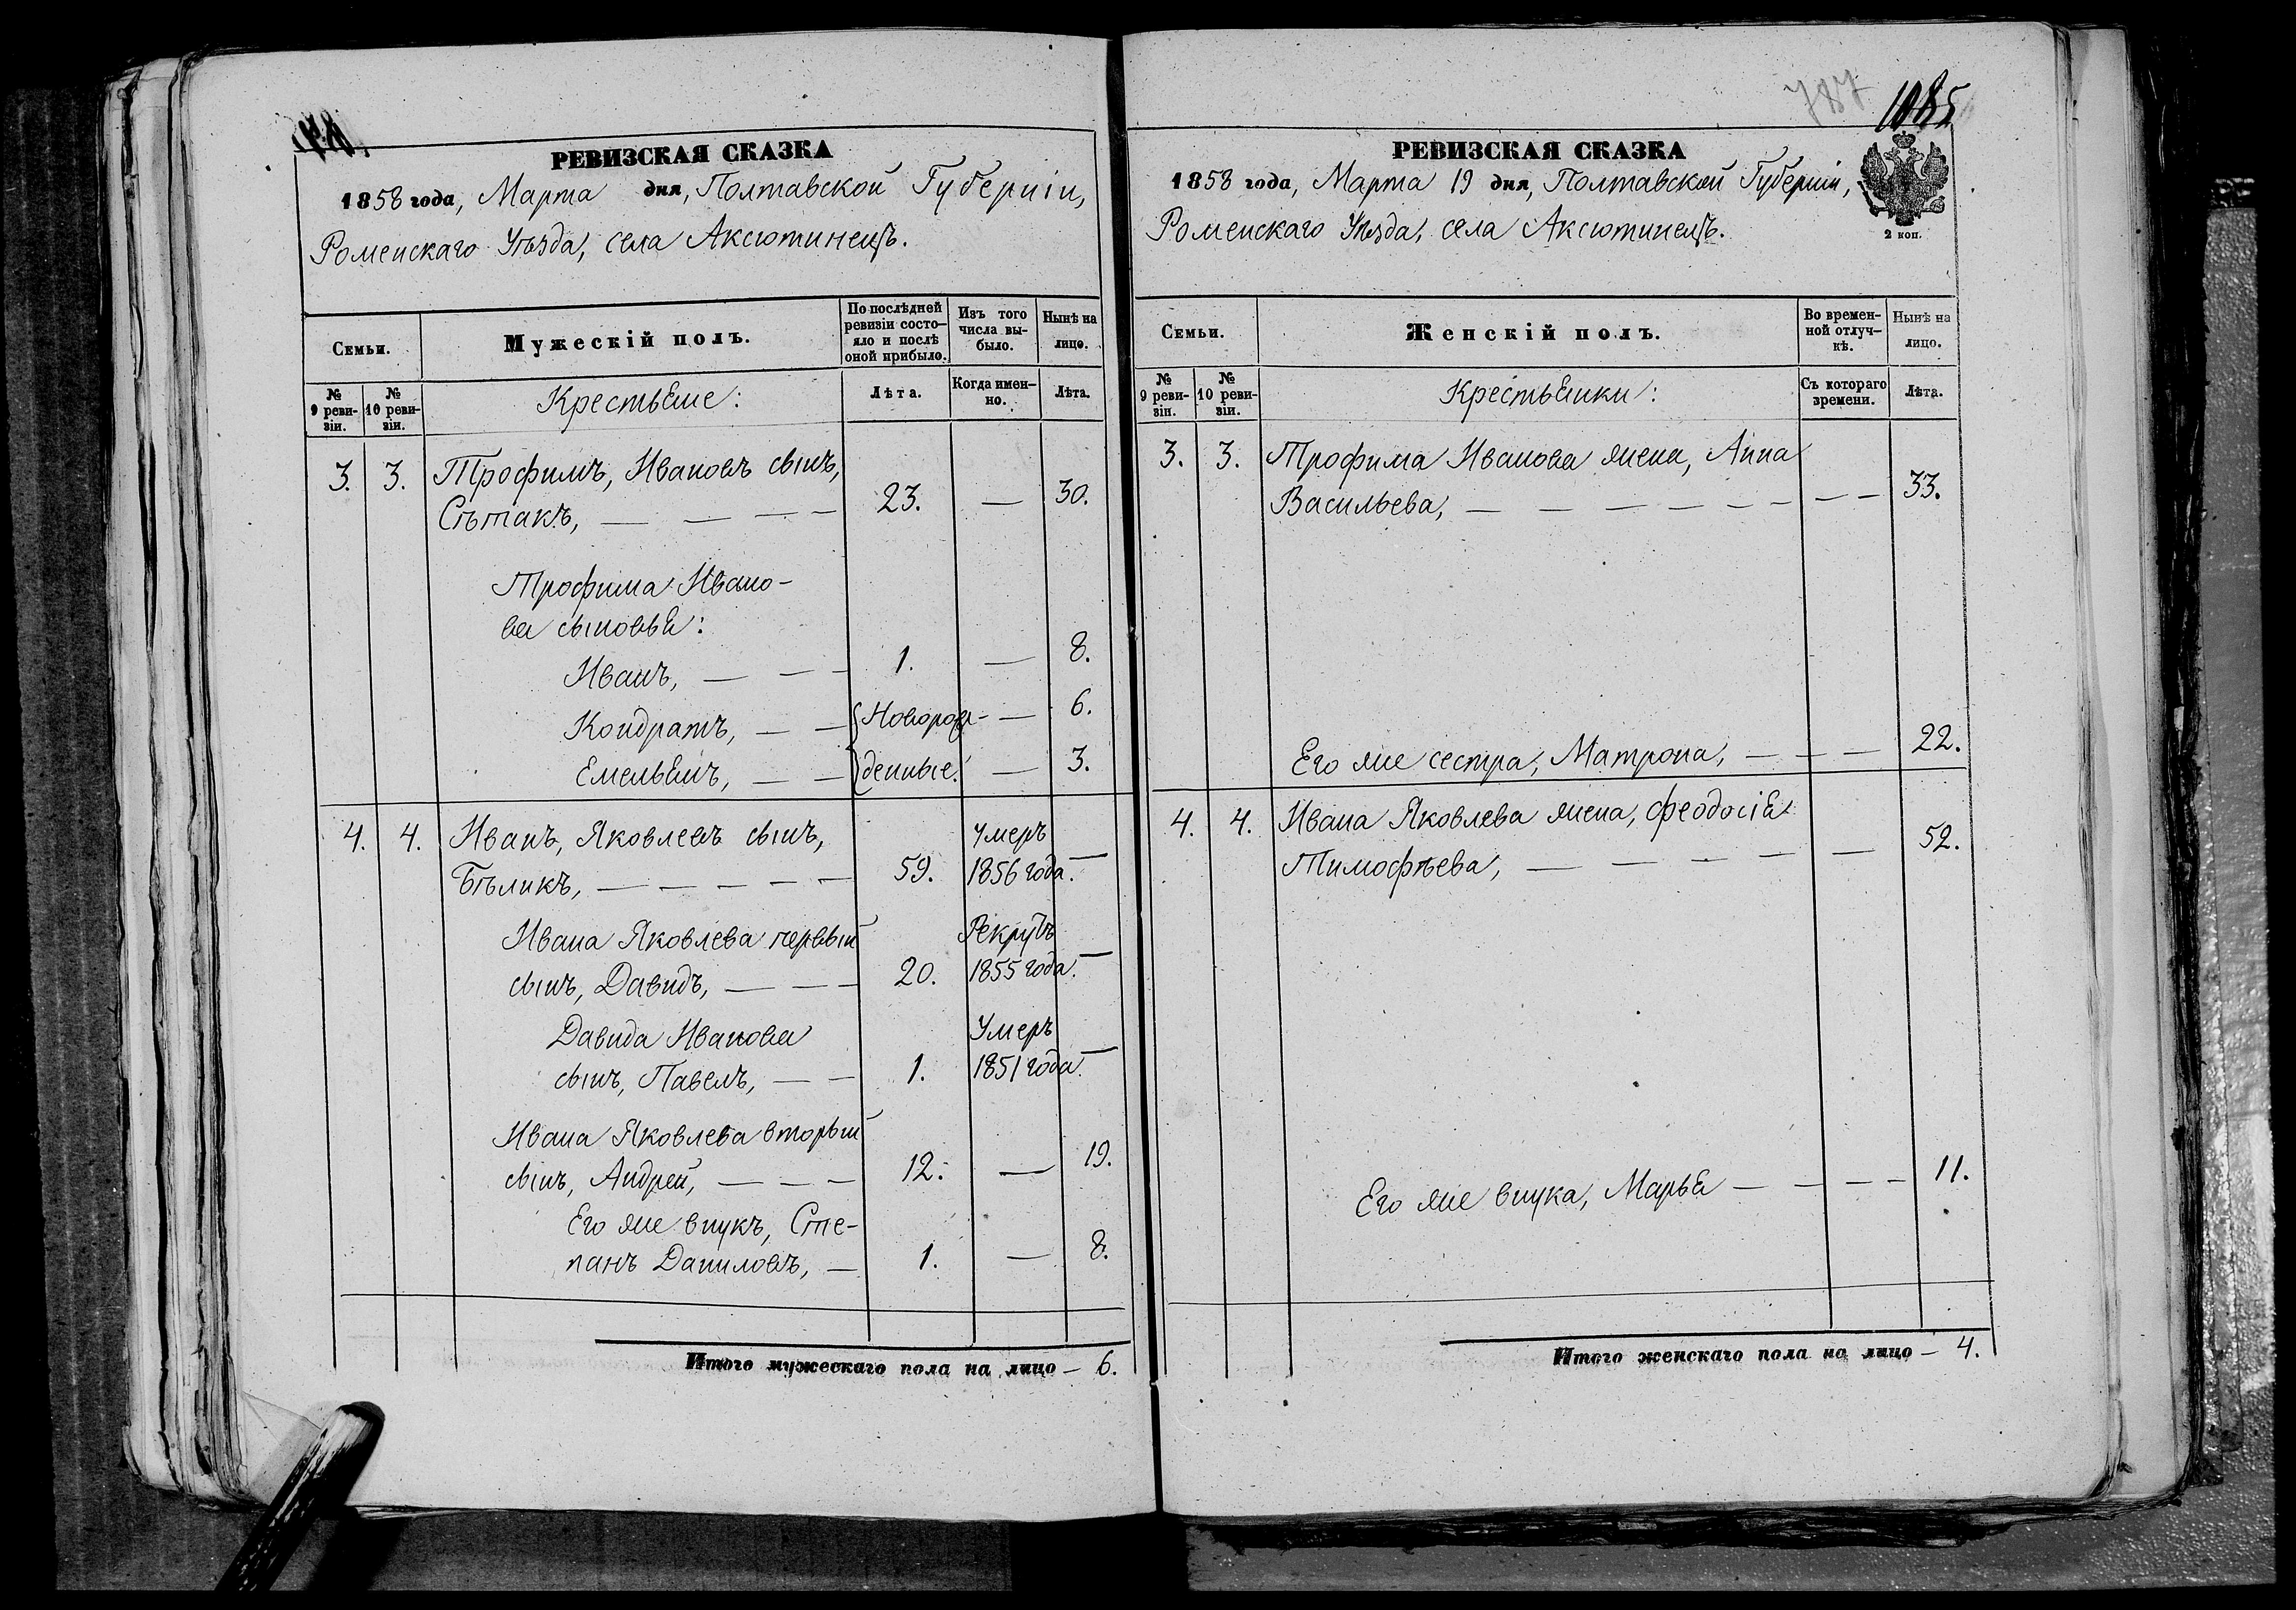 РЕВИЗСКАЯ СКАЗКА
1858 года, Марта дня, Полтавской Губерніи,
Роменскаго Уѣзда, села Аксютинецъ.
Семьи.
Мужескій полъ.
По послѣдней ревизіи состо-яло и послѣ оной прибыло.
Изъ того числа вы-было.
Нынѣ на лицо.
№ 9 реви-зіи.
№ 10 реви-зіи.
Крестьяне:
Лѣта.
Когда имен-но.
Лѣта.
3. 3. Трофимъ, Ивановъ сынъ,
Сѣтакъ, — — — — 23. — 30.
Трофима Ивано-
ва сыновья:
Иванъ, — — — 1. — 8.
Кондратъ, — — Новорож- — 6.
Емельянъ, — — денные. — 3.
4. 4. Иванъ, Яковлевъ сынъ, умеръ
Бѣликъ, — — — — — 59. 1856 года. —
Ивана Яковлева первый Рекрутъ
сынъ, Давидъ, — — — 20. 1855 года. —
Давида Иванова Умеръ
сынъ, Павелъ, — — 1. 1851 года. —
Ивана Яковлева вторый
сынъ, Андрей, — — — 12. — 19.
Его же внукъ, Сте-
панъ Даниловъ, — 1. — 8.
Итого мужескаго пола на лицо — 6.
787 1085
РЕВИЗСКАЯ СКАЗКА
1858 года, Марта 19 дня, Полтавской Губерніи,
Роменскаго Уѣзда, села Аксютинецъ.
2 коп.
Семьи.
Женскій полъ.
Во времен-ной отлуч-кѣ.
Нынѣ на лицо.
№ 9 реви-зіи.
№ 10 реви-зіи.
Крестьянки:
Съ котораго времени.
Лѣта.
3. 3. Трофима Иванова жена, Анна
Васильева, — — — — — — — — 33.
Его же сестра, Матрона, — — — 22.
4. 4. Ивана Яковлева жена, Феодосія
Тимофѣева, — — — — — 52.
Его же внука, Марья — — — — 11.
Итого женскаго пола на лицо — 4.